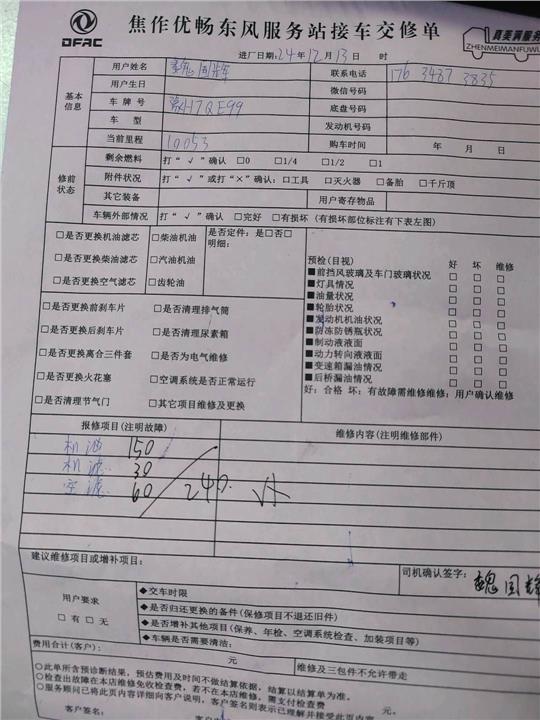 DFAC
焦作优畅东风服务站接车交修单
真美满服务
ZHENMEIMANFUWU
进厂日期：24年12月13日 时
基本信息
用户姓名 魏国辉 联系电话 176 3487 3835
用户生日 微信号码
车牌号 豫H7QE99 底盘号码
车型 发动机号码
当前里程 10053 购车时间 年 月 日
修前状态
剩余燃料 打“√”确认 □0 □1/4 □1/2 □1
附件状况 打“√”或打“×”确认：□工具 □灭火器 □备胎 □千斤顶
其它装备 用户寄存物品
车辆外部情况 打“√”确认 □完好 □有损坏（有损坏部位标注有下表左图）
□是否更换机油滤芯 □柴油机油 是否定件：是□否□
□是否更换柴油滤芯 □汽油机油 明细：
□是否更换空气滤芯 □齿轮油
□是否更换前刹车片 □是否清理排气筒
□是否更换后刹车片 □是否清理尿素箱
□是否更换离合三件套 □是否为电气维修
□是否更换火花塞 □空调系统是否正常运行
□是否清理节气门 □其它项目维修及更换
预检(目视) 好 坏 维修
■前挡风玻璃及车门玻璃状况 □ □ □
■灯具情况 □ □ □
■油量状况 □ □ □
■轮胎状况 □ □ □
■发动机机油状况 □ □ □
■防冻防锈瓶状况 □ □ □
■制动液液面 □ □ □
■动力转向液液面 □ □ □
■变速箱漏油情况 □ □ □
■后桥漏油情况 □ □ □
好：合格 坏：有故障需维修维修：用户确认维修
报修项目(注明故障) 维修内容(注明维修部件)
机油 150
机滤 30
空滤 60 240.
建议维修项目或增补项目：
司机确认签字：魏国辉
用户要求
□有 □无
◆交车时限
◆是否归还更换的备件(保修项目不退还旧件)
◆是否增补其他项目(保养、年检、空调系统检查、加装项目等)
◆车辆是否需要清洁：
费用合计(客户)： 元 维修及三包件不允许带走
○此单所含预诊断结果，预估费用及时间不做结算依据，结算以结算单为准。
○检查出故障在本店维修免收检查费，若不在本店维修，需支付检查费 元。
○服务顾问已将此页内容详细向客户说明，客户签名则表示已理解并接受此页内容。
客户签名：